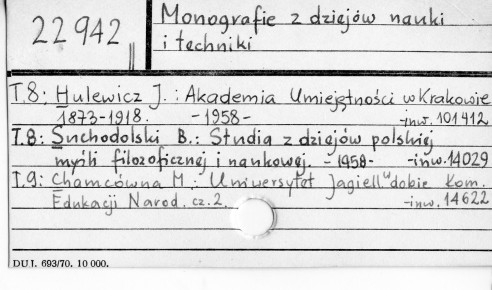 22 942
Monografie z dziejów nauki
i techniki
T.8: Hulewicz J.: Akademia Umiejętności w Krakowie
1873-1918. -1958- -inw. 101412
T.8: Suchodolski B.: Studia z dziejów polskiej
myśli filozoficznej i naukowej. -1958- -inw. 14029
T.9: Chamcówna M.: Uniwersytet Jagiell. w dobie Kom.
Edukacji Narod. cz. 2. -inw. 14622
DUJ. 693/70. 10 000.